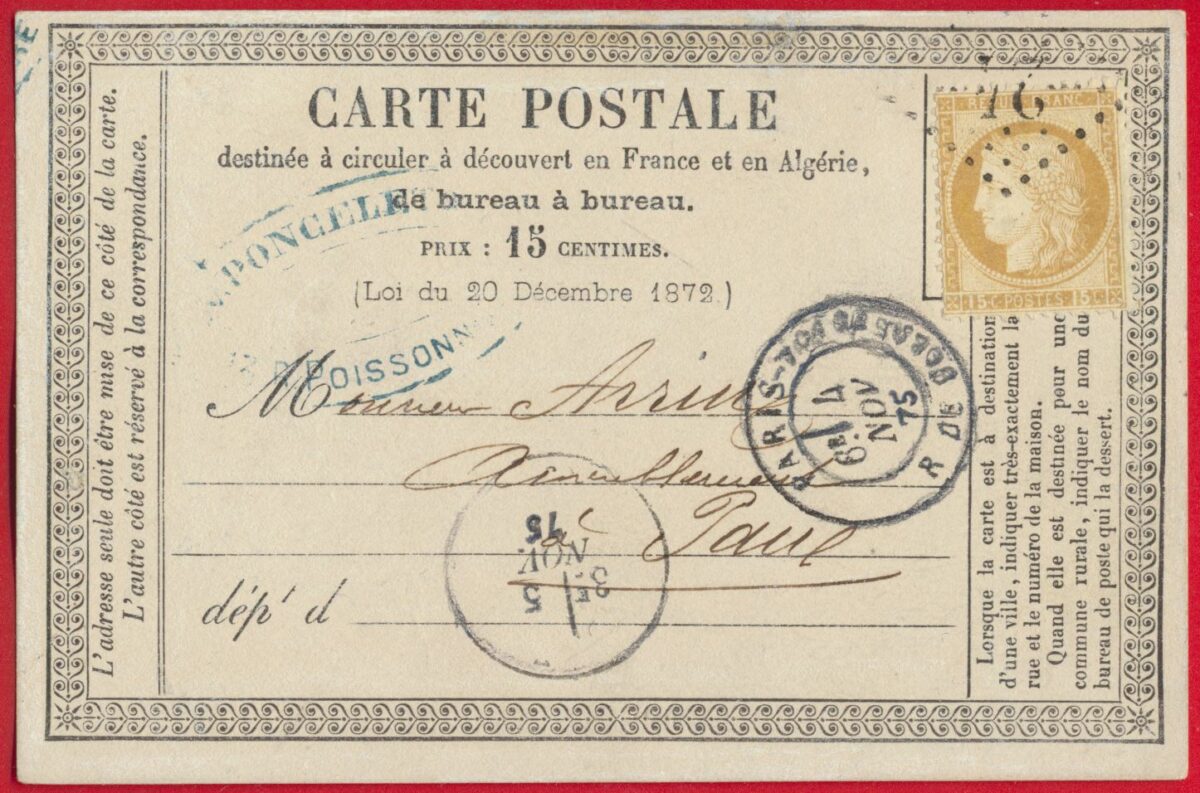 CARTE POSTALE
destinée à circuler à découvert en France et en Algérie,
de bureau à bureau.
PRIX : 15 CENTIMES.
(Loi du 20 Décembre 1872.)
PONCELET
POISSONN
REPUB. FRANC.
15 C. POSTES 15 C.
PARIS
R DE
6E 4
NOV
75
Monsieur
Ameublement
à
dépt d
3E 5
NOV
75
L'adresse seule doit être mise de ce côté de la carte.
L'autre côté est réservé à la correspondance.
Lorsque la carte est à destination
d'une ville, indiquer très-exactement la
rue et le numéro de la maison.
Quand elle est destinée pour une
commune rurale, indiquer le nom du
bureau de poste qui la dessert.